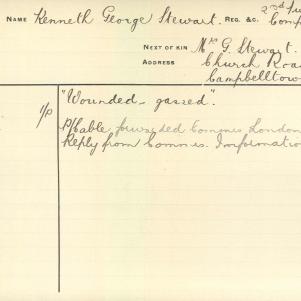 NAME Kenneth George Stewart. REG. &C. 2nd
Com
NEXT OF KIN Mr G. Stewart.
ADDRESS Church Roa
Campbelltow
1/P "Wounded - gassed".
P/Cable forwarded Commes London
Reply from Commes. Informatio